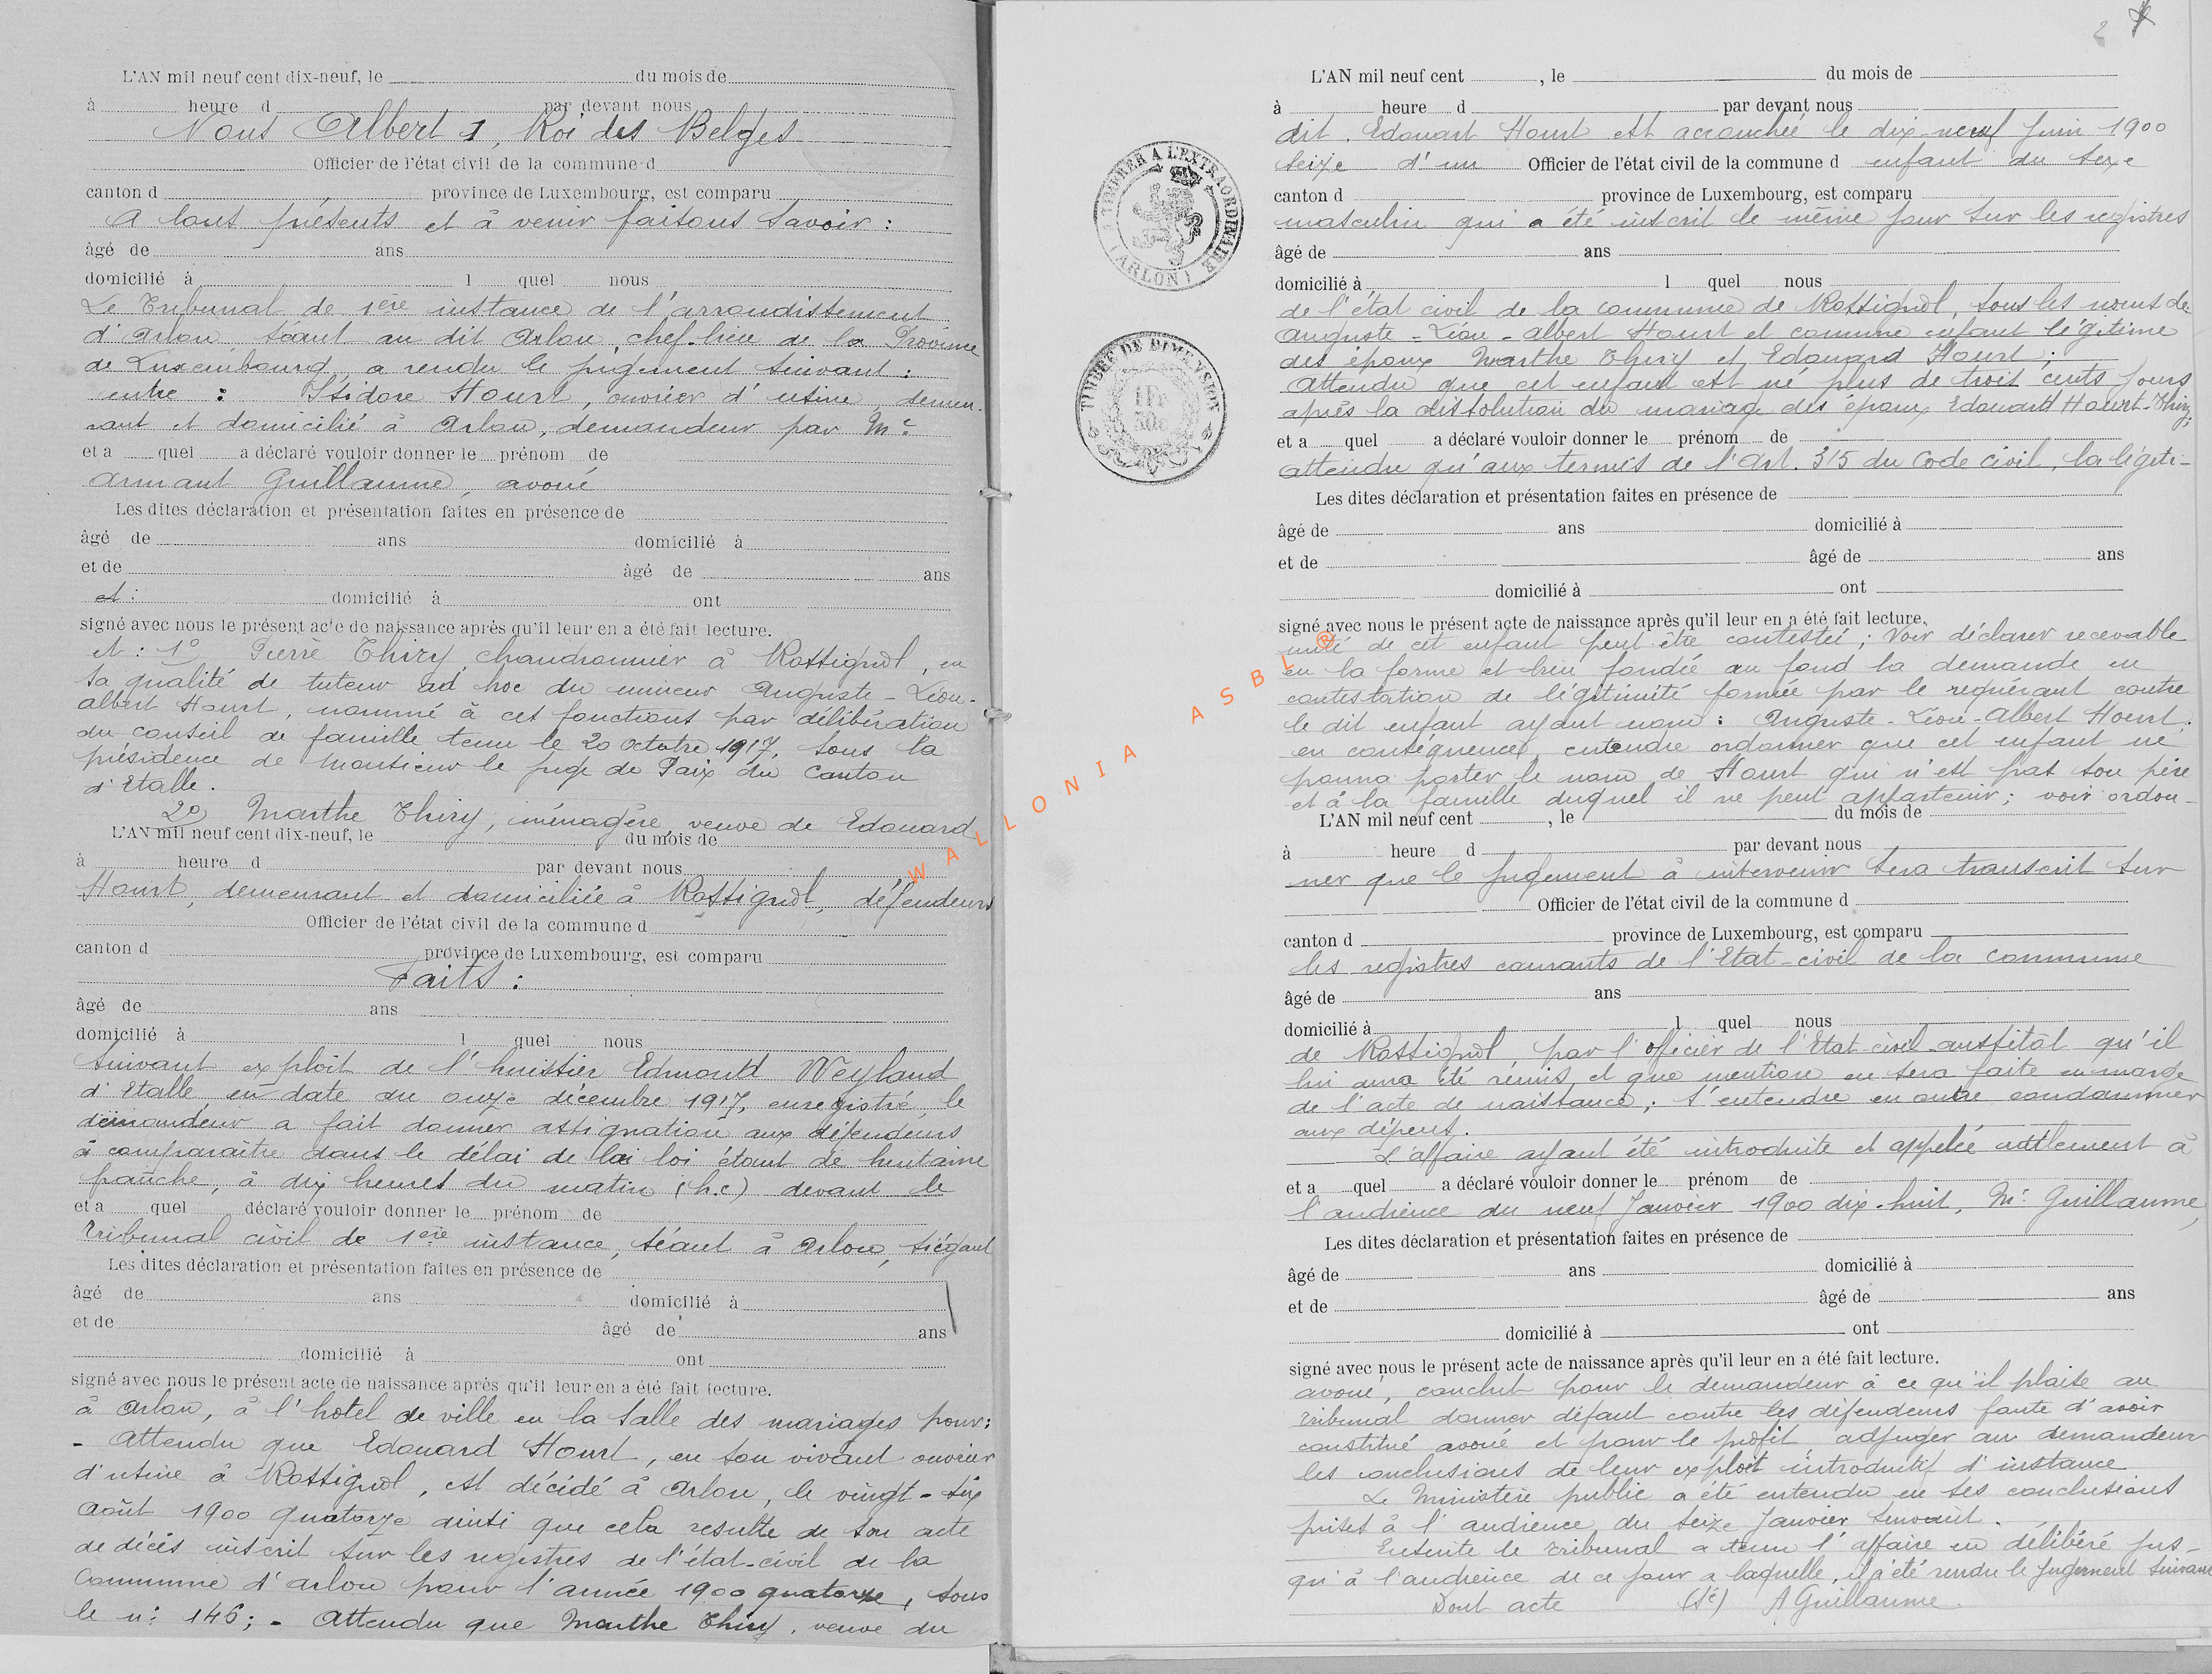 L'AN mil neuf cent dix-neuf, le du mois de
à heure d par devant nous
Nous Albert 1, Roi des Belges
Officier de l'état civil de la commune d
canton d province de Luxembourg, est comparu
A tous présents et à venir faisons savoir :
âgé de ans
domicilié à l quel nous
Le Tribunal de 1ère instance de l'arrondissement
d'Arlon, séant au dit Arlon, chef-lieu de la Province
de Luxembourg a rendu le jugement suivant :
entre : Isidore Hourt, ouvrier d'usine, demeu-
rant et domicilié à Arlon, demandeur par Me
et a quel a déclaré vouloir donner le prénom de
Armant Guillaume, avoué
Les dites déclaration et présentation faites en présence de
âgé de ans domicilié à
et de âgé de ans
et : domicilié à ont
signé avec nous le présent acte de naissance après qu'il leur en a été fait lecture.
et : 1° Pierre Thiry, chaudronnier à Rossignol, en
sa qualité de tuteur ad hoc du mineur Auguste-Léon-
Albert Hourt, nommé à ces fonctions par délibération
du conseil de famille tenu le 20 octobre 1917, sous la
présidence de Monsieur le juge de Paix du Canton
d'Etalle.
2° Marthe Thiry, ménagère, veuve de Edouard
L'AN mil neuf cent dix-neuf, le du mois de
à heure d par devant nous
Hourt, demeurant et domiciliée à Rossignol, défendeurs
Officier de l'état civil de la commune d
canton d province de Luxembourg, est comparu
Faits :
âgé de ans
domicilié à l quel nous
Suivant exploit de l'huissier Edmond Weyland
d'Etalle en date du onze décembre 1917, enregistré, le
demandeur a fait donner assignation aux défendeurs
à comparaître dans le délai de la loi étant de huitaine
franche, à dix heures du matin (h.c) devant le
et a quel déclaré vouloir donner le prénom de
Tribunal civil de 1ère instance, séant à Arlon, siégeant
Les dites déclaration et présentation faites en présence de
âgé de ans domicilié à
et de âgé de ans
domicilié à ont
signé avec nous le présent acte de naissance après qu'il leur en a été fait lecture.
à Arlon, à l'hotel de ville en la salle des mariages pour :
- Attendu que Edouard Hourt, en son vivant ouvrier
d'usine à Rossignol, est décidé à Arlon, le vingt-six
Août 1900 quatorze ainsi que cela resulte de son acte
de décès inscrit sur les registres de l'état-civil de la
Commune d'Arlon pour l'année 1900 quatorze, sous
le n° 146 ; - Attendu que Marthe Thiry, veuve du
2
L'AN mil neuf cent , le du mois de
à heure d par devant nous
dit Edouart Hourt est accouchée le dix-neuf Juin 1900
seize d'un Officier de l'état civil de la commune d enfant du sexe
canton d province de Luxembourg, est comparu
masculin qui a été inscrit le même jour sur les registres
âgé de ans
domicilié à l quel nous
de l'état civil de la commune de Rossignol, sous les noms de
Auguste-Léon-Albert Hourt et comme enfant légitime
des époux Marthe Thiry et Edouard Hourt ;
Attendu que cet enfant est né plus de trois cents jours
après la dissolution du mariage des époux Edouard Hourt-Thiry ;
et a quel a déclaré vouloir donner le prénom de
attendu qu'aux termes de l'Art. 315 du Code civil, la légiti-
Les dites déclaration et présentation faites en présence de
âgé de ans domicilié à
et de âgé de ans
domicilié à ont
signé avec nous le présent acte de naissance après qu'il leur en a été fait lecture.
mité de cet enfant peut être contestée ; Voir déclarer recevable
en la forme et bien fondée au fond la demande en
contestation de légitimité formée par le requérant contre
le dit enfant ayant nom : Auguste-Léon-Albert Hourt.
en conséquence, entendre ordonner que cet enfant ne
pourra porter le nom de Hourt qui n'est pas son père
et à la famille duquel il ne peut appartenir ; voir ordon-
L'AN mil neuf cent , le du mois de
à heure d par devant nous
ner que le jugement à intervenir sera transcrit sur
Officier de l'état civil de la commune d
canton d province de Luxembourg, est comparu
les registres courants de l'Etat-civil de la commune
âgé de ans
domicilié à l quel nous
de Rossignol, par l'officier de l'Etat-civil aussitôt qu'il
lui aura été remis et que mention en sera faite en marge
de l'acte de naissance ; s'entendre en outre condamner
aux dépens.
L'affaire ayant été introduite et appelée utilement à
et a quel a déclaré vouloir donner le prénom de
l'audience du neuf Janvier 1900 dix-huit, Me Guillaume,
Les dites déclaration et présentation faites en présence de
âgé de ans domicilié à
et de âgé de ans
domicilié à ont
signé avec nous le présent acte de naissance après qu'il leur en a été fait lecture.
avoué, conclut pour le demandeur à ce qu'il plaise au
Tribunal donner défaut contre les défendeurs faute d'avoir
constitué avoué et pour le profit adjuger au demandeur
les conclusions de leur exploit introductif d'instance
Le Ministère public a été entendu en ses conclusions
prises à l'audience du seize Janvier suivant.
Ensuite le Tribunal a tenu l'affaire en délibéré jus-
qu'à l'audience de ce jour a laquelle, il a été rendu le Jugement suivant
Dont acte (sé) A Guillaume.
A TIMBRER A L'EXTRAORDINAIRE
(ARLON)
TIMBRE DE DIMENSION
1 Fr
50c
WALLONIA ASBL ®